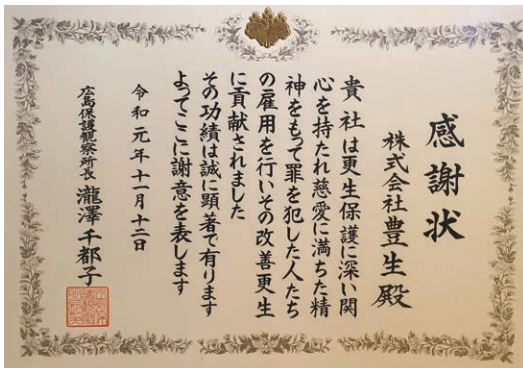 感謝状
株式会社豊生殿
貴社は更生保護に深い関
心を持たれ慈愛に満ちた精
神をもって罪を犯した人たち
の雇用を行いその改善更生
に貢献されました
その功績は誠に顕著で有ります
よってここに謝意を表します
令和元年十一月十二日
広島保護観察所長 瀧澤千都子